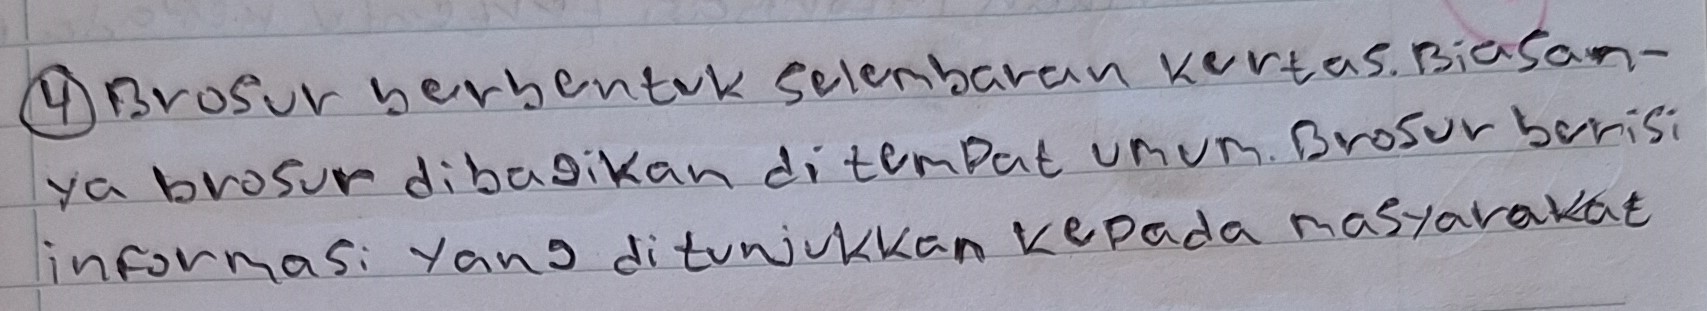 ④ Brosur berbentuk selembaran kertas. Biasan-
ya brosur dibagikan di tempat umum. Brosur berisi
informasi yang ditunjukkan kepada masyarakat